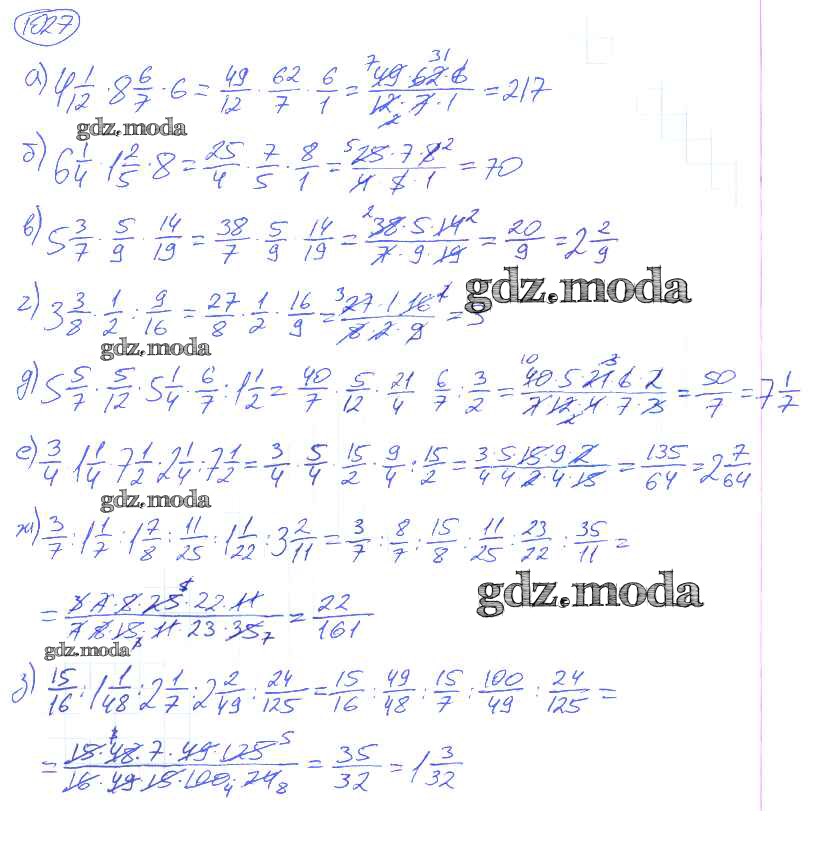 1027
а) 4 1/12 · 8 6/7 · 6 = 49/12 · 62/7 · 6/1 = 49·62·6/12·7·1 = 217
gdz.moda
б) 6 1/4 · 1 2/5 · 8 = 25/4 · 7/5 · 8/1 = 25·7·8/4·5·1 = 70
в) 5 3/7 · 5/9 · 14/19 = 38/7 · 5/9 · 14/19 = 38·5·14/7·9·19 = 20/9 = 2 2/9
gdz.moda
г) 3 3/8 · 1/2 : 9/16 = 27/8 · 1/2 · 16/9 = 27·1·16/8·2·9 = 3
gdz.moda
д) 5 5/7 · 5/12 · 5 1/4 · 6/7 : 1 1/2 = 40/7 · 5/12 · 21/4 · 6/7 : 3/2 = 40·5·21·6·2/7·12·4·7·3 = 50/7 = 7 1/7
е) 3/4 · 1 1/4 · 7 1/2 · 2 1/4 : 7 1/2 = 3/4 · 5/4 · 15/2 · 9/4 : 15/2 = 3·5·15·9·2/4·4·2·4·15 = 135/64 = 2 7/64
gdz.moda
ж) 3/7 : 1 1/7 : 1 7/8 : 11/25 : 1 1/22 : 3 2/11 = 3/7 : 8/7 : 15/8 : 11/25 : 23/22 : 35/11 =
gdz.moda
= 3·7·8·25·22·11/7·8·15·11·23·35 = 22/161
gdz.moda
з) 15/16 : 1 1/48 : 2 1/7 : 2 2/49 : 24/125 = 15/16 : 49/48 : 15/7 : 100/49 : 24/125 =
= 15·48·7·49·125/16·49·15·100·24 = 35/32 = 1 3/32